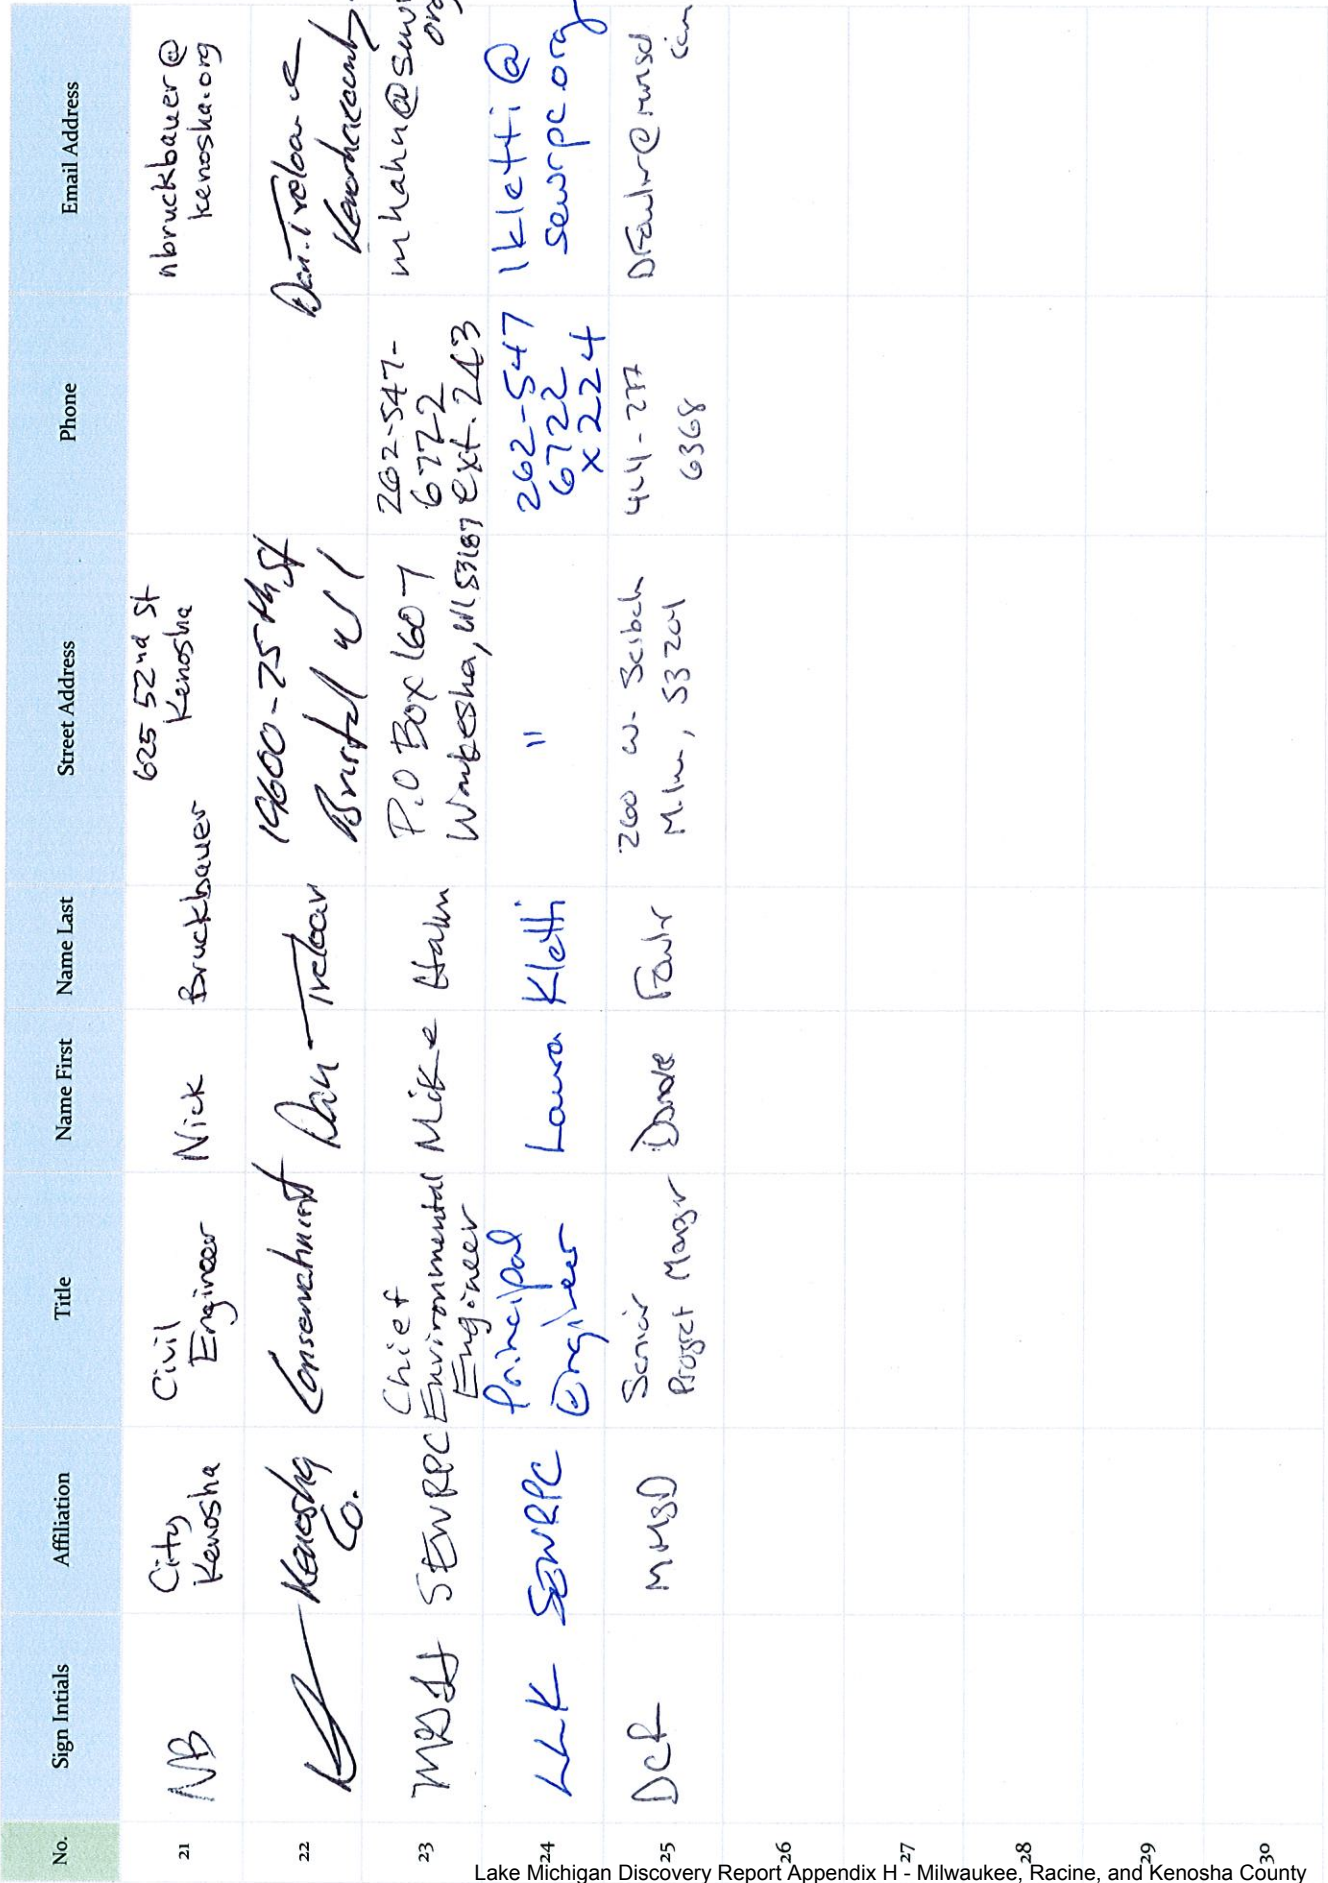 No. Sign Intials Affiliation Title Name First Name Last Street Address Phone Email Address
21 NB City Kenosha Civil Engineer Nick Bruckbauer 625 52nd St Kenosha nbruckbauer@kenosha.org
22 Kenosha Co. Conservationist Dan Treloar 19600-75th St Bristol WI Dan.Treloar@
23 MGH SEWRPC Chief Environmental Engineer Mike Hahn P.O Box 1607 Waukesha, WI 53187 262-547-6722 ext. 243 mhahn@sewrpc.org
24 LLK SEWRPC Principal Engineer Laura Kletti " 262-547 6722 x224 lkletti@sewrpc.org
25 DCF MMSD Senior Project Manager 260 W. Seibch Milw, 53204 6368
26
27
28
29
30
Lake Michigan Discovery Report Appendix H - Milwaukee, Racine, and Kenosha County